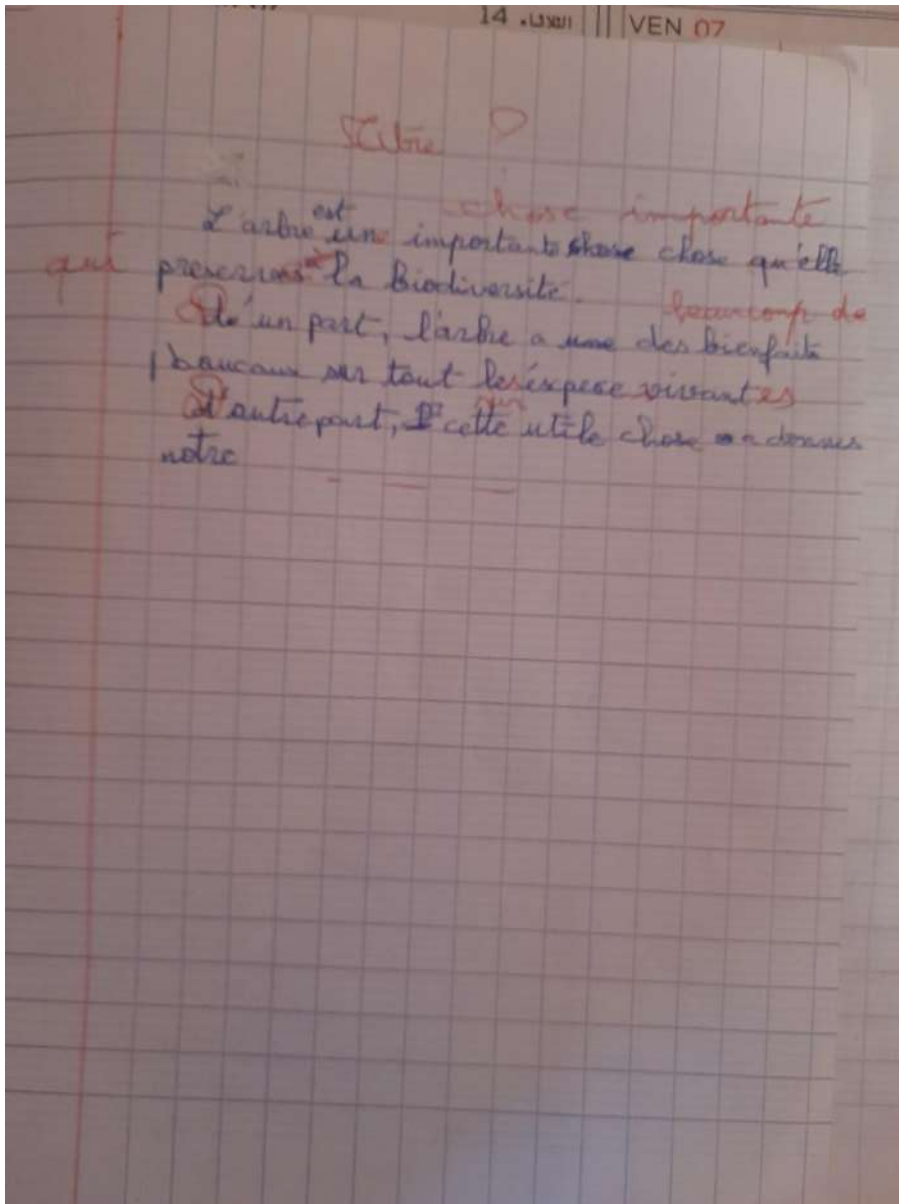 14 VEN 07
Titre ?
chose importante
L'arbre est une importante chose qu'elle
qui preserves la Biodiversité.
beaucoup de
De un part, l'arbre a une des bienfaits
baucaux sur tout les expece vivantes
D'autre part, cette utile chose on donnes
notre